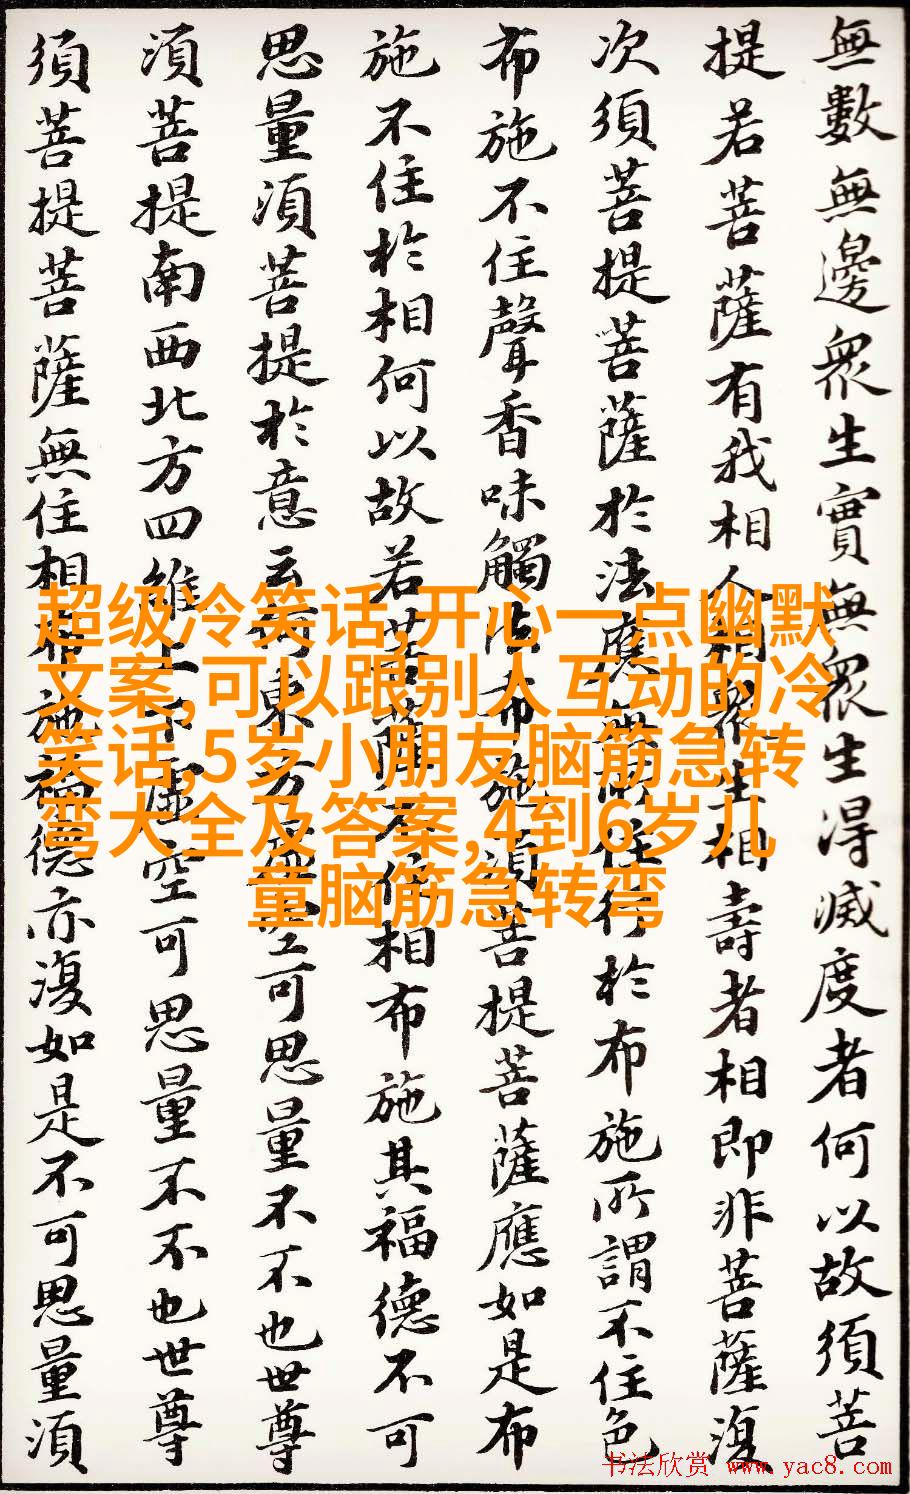 無數無邊衆生實無衆生得滅度者何以故須菩
提若菩薩有我相人相衆生相壽者相即非菩薩復
次須菩提菩薩於法應無所住行於布施所謂不住色
布施不住聲香味觸法布施須菩提菩薩應如是布
施不住於相何以故若菩薩不住相布施其福德不可
思量須菩提於意云何東方虛空可思量不不也世尊
須菩提南西北方四維上下虛空可思量不不也世尊
須菩提菩薩無住相布施福德亦復如是不可思量須
超级冷笑话,开心一点幽默
文案,可以跟别人互动的冷
笑话,5岁小朋友脑筋急转
弯大全及答案,4到6岁儿
童脑筋急转弯
书法欣赏 www.yac8.com